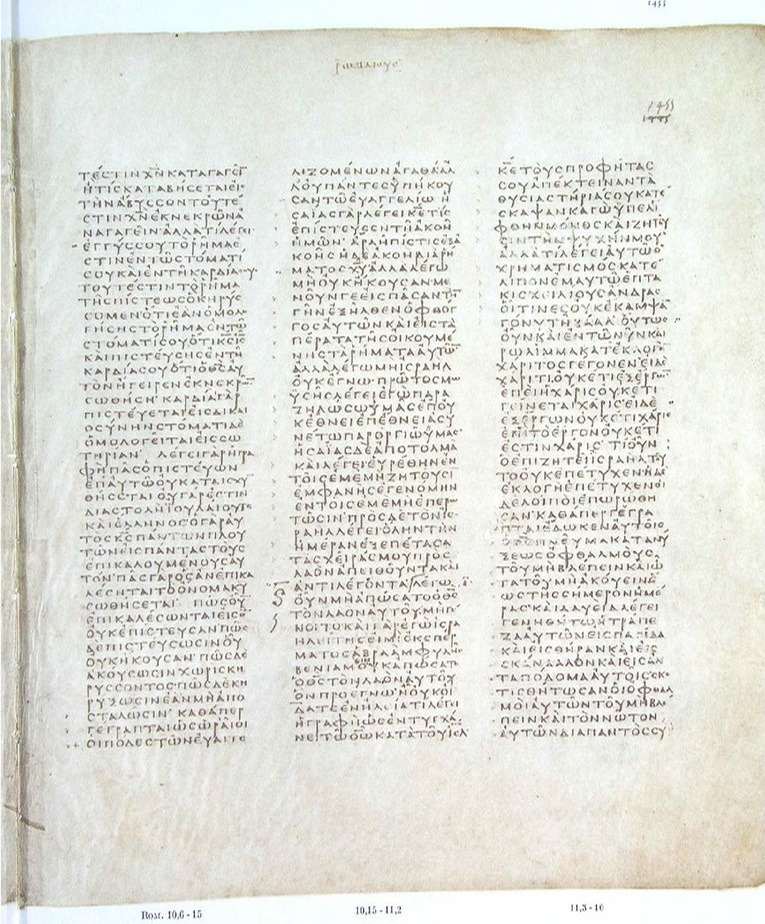 Ρωμαιους
1455
ΤΕϹΤΙΝΧΝΚΑΤΑΓΑΓΕΙ
ΗΤΙϹΚΑΤΑΒΗϹΕΤΑΙΕΙϹ
ΤΗΝΑΒΥϹϹΟΝΤΟΥΤΕ
ϹΤΙΝΧΝΕΚΝΕΚΡΩΝΑ
ΝΑΓΑΓΕΙΝΑΛΛΑΤΙΛΕΓΕΙ
ΕΓΓΥϹϹΟΥΤΟΡΗΜΑΕ
ϹΤΙΝΕΝΤΩϹΤΟΜΑΤΙ
ϹΟΥΚΑΙΕΝΤΗΚΑΡΔΙΑϹΟΥ
ΤΟΥΤΕϹΤΙΝΤΟΡΗΜΑ
ΤΗϹΠΙϹΤΕΩϹΟΚΗΡΥϹ
ϹΟΜΕΝΟΤΙΕΑΝΟΜΟΛΟ
ΓΗϹΗϹΤΟΡΗΜΑΕΝΤΩ
ϹΤΟΜΑΤΙϹΟΥΟΤΙΚϹΙϹ
ΚΑΙΠΙϹΤΕΥϹΗϹΕΝΤΗ
ΚΑΡΔΙΑϹΟΥΟΤΙΟΘϹΑΥ
ΤΟΝΗΓΕΙΡΕΝΕΚΝΕΚΡΩ
ϹΩΘΗϹΗ· ΚΑΡΔΙΑΓΑΡ
ΠΙϹΤΕΥΕΤΑΙΕΙϹΔΙΚΑΙ
ΟϹΥΝΗΝϹΤΟΜΑΤΙΔΕ
ΟΜΟΛΟΓΕΙΤΑΙΕΙϹϹΩ
ΤΗΡΙΑΝ· ΛΕΓΕΙΓΑΡΗΓΡΑ
ΦΗΠΑϹΟΠΙϹΤΕΥΩΝ
ΕΠΑΥΤΩΟΥΚΑΤΑΙϹΧΥ
ΘΗϹΕΤΑΙΟΥΓΑΡΕϹΤΙΝ
ΔΙΑϹΤΟΛΗΙΟΥΔΑΙΟΥΤΕ
ΚΑΙΕΛΛΗΝΟϹΟΓΑΡΑΥ
ΤΟϹΚϹΠΑΝΤΩΝΠΛΟΥ
ΤΩΝΕΙϹΠΑΝΤΑϹΤΟΥϹ
ΕΠΙΚΑΛΟΥΜΕΝΟΥϹΑΥ
ΤΟΝΠΑϹΓΑΡΟϹΑΝΕΠΙΚΑ
ΛΕϹΗΤΑΙΤΟΟΝΟΜΑΚΥ
ϹΩΘΗϹΕΤΑΙ· ΠΩϹΟΥ
ΕΠΙΚΑΛΕϹΩΝΤΑΙΕΙϹΟ
ΟΥΚΕΠΙϹΤΕΥϹΑΝΠΩϹ
ΔΕΠΙϹΤΕΥϹΩϹΙΝΟΥ
ΟΥΚΗΚΟΥϹΑΝ·ΠΩϹΔΕ
ΑΚΟΥϹΩϹΙΝΧΩΡΙϹΚΗ
ΡΥϹϹΟΝΤΟϹ·ΠΩϹΔΕΚΗ
ΡΥΞΩϹΙΝΕΑΝΜΗΑΠΟ
ϹΤΑΛΩϹΙΝ· ΚΑΘΑΠΕΡ
ΓΕΓΡΑΠΤΑΙΩϹΩΡΑΙΟΙ
ΟΙΠΟΔΕϹΤΩΝΕΥΑΓΓΕ
ΛΙΖΟΜΕΝΩΝΑΓΑΘΑΑΛ
ΛΟΥΠΑΝΤΕϹΥΠΗΚΟΥ
ϹΑΝΤΩΕΥΑΓΓΕΛΙΩΗ
ϹΑΙΑϹΓΑΡΛΕΓΕΙΚΕΤΙϹ
ΕΠΙϹΤΕΥϹΕΝΤΗΑΚΟΗ
ΗΜΩΝ· ΑΡΑΗΠΙϹΤΙϹΕΞΑ
ΚΟΗϹΗΔΕΑΚΟΗΔΙΑΡΗ
ΜΑΤΟϹΧΥΑΛΛΑΛΕΓΩ
ΜΗΟΥΚΗΚΟΥϹΑΝΜΕ
ΝΟΥΝΓΕΕΙϹΠΑϹΑΝΤΗ
ΓΗΝΕΞΗΛΘΕΝΟΦΘΟΓ
ΓΟϹΑΥΤΩΝΚΑΙΕΙϹΤΑ
ΠΕΡΑΤΑΤΗϹΟΙΚΟΥΜΕ
ΝΗϹΤΑΡΗΜΑΤΑΑΥΤΩ
ΑΛΛΑΛΕΓΩΜΗΙϹΡΑΗΛ
ΟΥΚΕΓΝΩ· ΠΡΩΤΟϹΜΩ
ΥϹΗϹΛΕΓΕΙΕΓΩΠΑΡΑ
ΖΗΛΩϹΩΥΜΑϹΕΠΟΥ
ΚΕΘΝΕΙΕΠΕΘΝΕΙΑϹΥ
ΝΕΤΩΠΑΡΟΡΓΙΩΥΜΑϹ
ΗϹΑΙΑϹΔΕΑΠΟΤΟΛΜΑ
ΚΑΙΛΕΓΕΙΕΥΡΕΘΗΝΕΝ
ΤΟΙϹΕΜΕΜΗΖΗΤΟΥϹΙ
ΕΜΦΑΝΗϹΕΓΕΝΟΜΗΝ
ΕΝΤΟΙϹΕΜΕΜΗΕΠΕΡΩ
ΤΩϹΙΝ·ΠΡΟϹΔΕΤΟΝΙϹ
ΡΑΗΛΛΕΓΕΙΟΛΗΝΤΗΝ
ΗΜΕΡΑΝΕΞΕΠΕΤΑϹΑ
ΤΑϹΧΕΙΡΑϹΜΟΥΠΡΟϹ
ΛΑΟΝΑΠΕΙΘΟΥΝΤΑΚΑΙ
ΑΝΤΙΛΕΓΟΝΤΑ·ΛΕΓΩ
ΟΥΝΜΗΑΠΩϹΑΤΟΟΘϹ
ΤΟΝΛΑΟΝΑΥΤΟΥ·ΜΗΓΕ
ΝΟΙΤΟΚΑΙΓΑΡΕΓΩΙϹΡΑ
ΗΛΕΙΤΗϹΕΙΜΙΕΚϹΠΕΡ
ΜΑΤΟϹΑΒΡΑΑΜΦΥΛΗϹ
ΒΕΝΙΑΜΕΙΝΟΥΚΑΠΩϹΑΤΟ
ΟΘϹΤΟΝΛΑΟΝΑΥΤΟΥ
ΟΝΠΡΟΕΓΝΩ·ΗΟΥΚΟΙ
ΔΑΤΕΕΝΗΛΕΙΑΤΙΛΕΓΕΙ
ΗΓΡΑΦΗΩϹΕΝΤΥΓΧΑ
ΝΕΙΤΩΘΩΚΑΤΑΤΟΥΙϹΛ
ΚΕΤΟΥϹΠΡΟΦΗΤΑϹ
ϹΟΥΑΠΕΚΤΕΙΝΑΝΤΑ
ΘΥϹΙΑϹΤΗΡΙΑϹΟΥΚΑΤΕ
ϹΚΑΨΑΝΚΑΓΩΥΠΕΛΙ
ΦΘΗΝΜΟΝΟϹΚΑΙΖΗΤΟΥ
ϹΙΝΤΗΝΨΥΧΗΝΜΟΥ
ΑΛΛΑΤΙΛΕΓΕΙΑΥΤΩΟ
ΧΡΗΜΑΤΙϹΜΟϹΚΑΤΕ
ΛΙΠΟΝΕΜΑΥΤΩΕΠΤΑ
ΚΙϹΧΕΙΛΙΟΥϹΑΝΔΡΑϹ
ΟΙΤΙΝΕϹΟΥΚΕΚΑΜΨΑ
ΓΟΝΥΤΗΒΑΑΛ· ΟΥΤΩϹ
ΟΥΝΚΑΙΕΝΤΩΝΥΝΚΑΙ
ΡΩΛΙΜΜΑΚΑΤΕΚΛΟΓΗ
ΧΑΡΙΤΟϹΓΕΓΟΝΕΝ·ΕΙΔΕ
ΧΑΡΙΤΙ,ΟΥΚΕΤΙΕΞΕΡΓΩ
ΕΠΕΙΗΧΑΡΙϹΟΥΚΕΤΙ
ΓΕΙΝΕΤΑΙΧΑΡΙϹ·ΕΙΔΕ
ΕΞΕΡΓΩΝΟΥΚΕΤΙΧΑΡΙϹ
ΕΠΕΙΤΟΕΡΓΟΝΟΥΚΕΤΙ
ΕϹΤΙΝΧΑΡΙϹ· ΤΙΟΥΝ
ΟΕΠΙΖΗΤΕΙΙϹΡΑΗΛΤΟΥ
ΤΟΟΥΚΕΠΕΤΥΧΕΝΗΔΕ
ΕΚΛΟΓΗΕΠΕΤΥΧΕΝΟΙ
ΔΕΛΟΙΠΟΙΕΠΩΡΩΘΗ
ϹΑΝΚΑΘΑΠΕΡΓΕΓΡΑ
ΠΤΑΙΕΔΩΚΕΝΑΥΤΟΙϹ
ΟΘϹΠΝΕΥΜΑΚΑΤΑΝΥ
ΞΕΩϹΟΦΘΑΛΜΟΥϹ
ΤΟΥΜΗΒΛΕΠΕΙΝΚΑΙΩ
ΤΑΤΟΥΜΗΑΚΟΥΕΙΝΕ
ΩϹΤΗϹϹΗΜΕΡΟΝΗΜΕ
ΡΑϹΚΑΙΔΑΥΕΙΔΛΕΓΕΙ
ΓΕΝΗΘΗΤΩΗΤΡΑΠΕ
ΖΑΑΥΤΩΝΕΙϹΠΑΓΙΔΑ
ΚΑΙΕΙϹΘΗΡΑΝΚΑΙΕΙϹ
ϹΚΑΝΔΑΛΟΝΚΑΙΕΙϹΑΝ
ΤΑΠΟΔΟΜΑΑΥΤΟΙϹϹΚΟ
ΤΙϹΘΗΤΩϹΑΝΟΙΟΦΘΑΛ
ΜΟΙΑΥΤΩΝΤΟΥΜΗΒΛΕ
ΠΕΙΝΚΑΙΤΟΝΝΩΤΟΝ
ΑΥΤΩΝΔΙΑΠΑΝΤΟϹϹΥ
Rom. 10,6 - 15
10,15 - 11,2
11,3 - 10